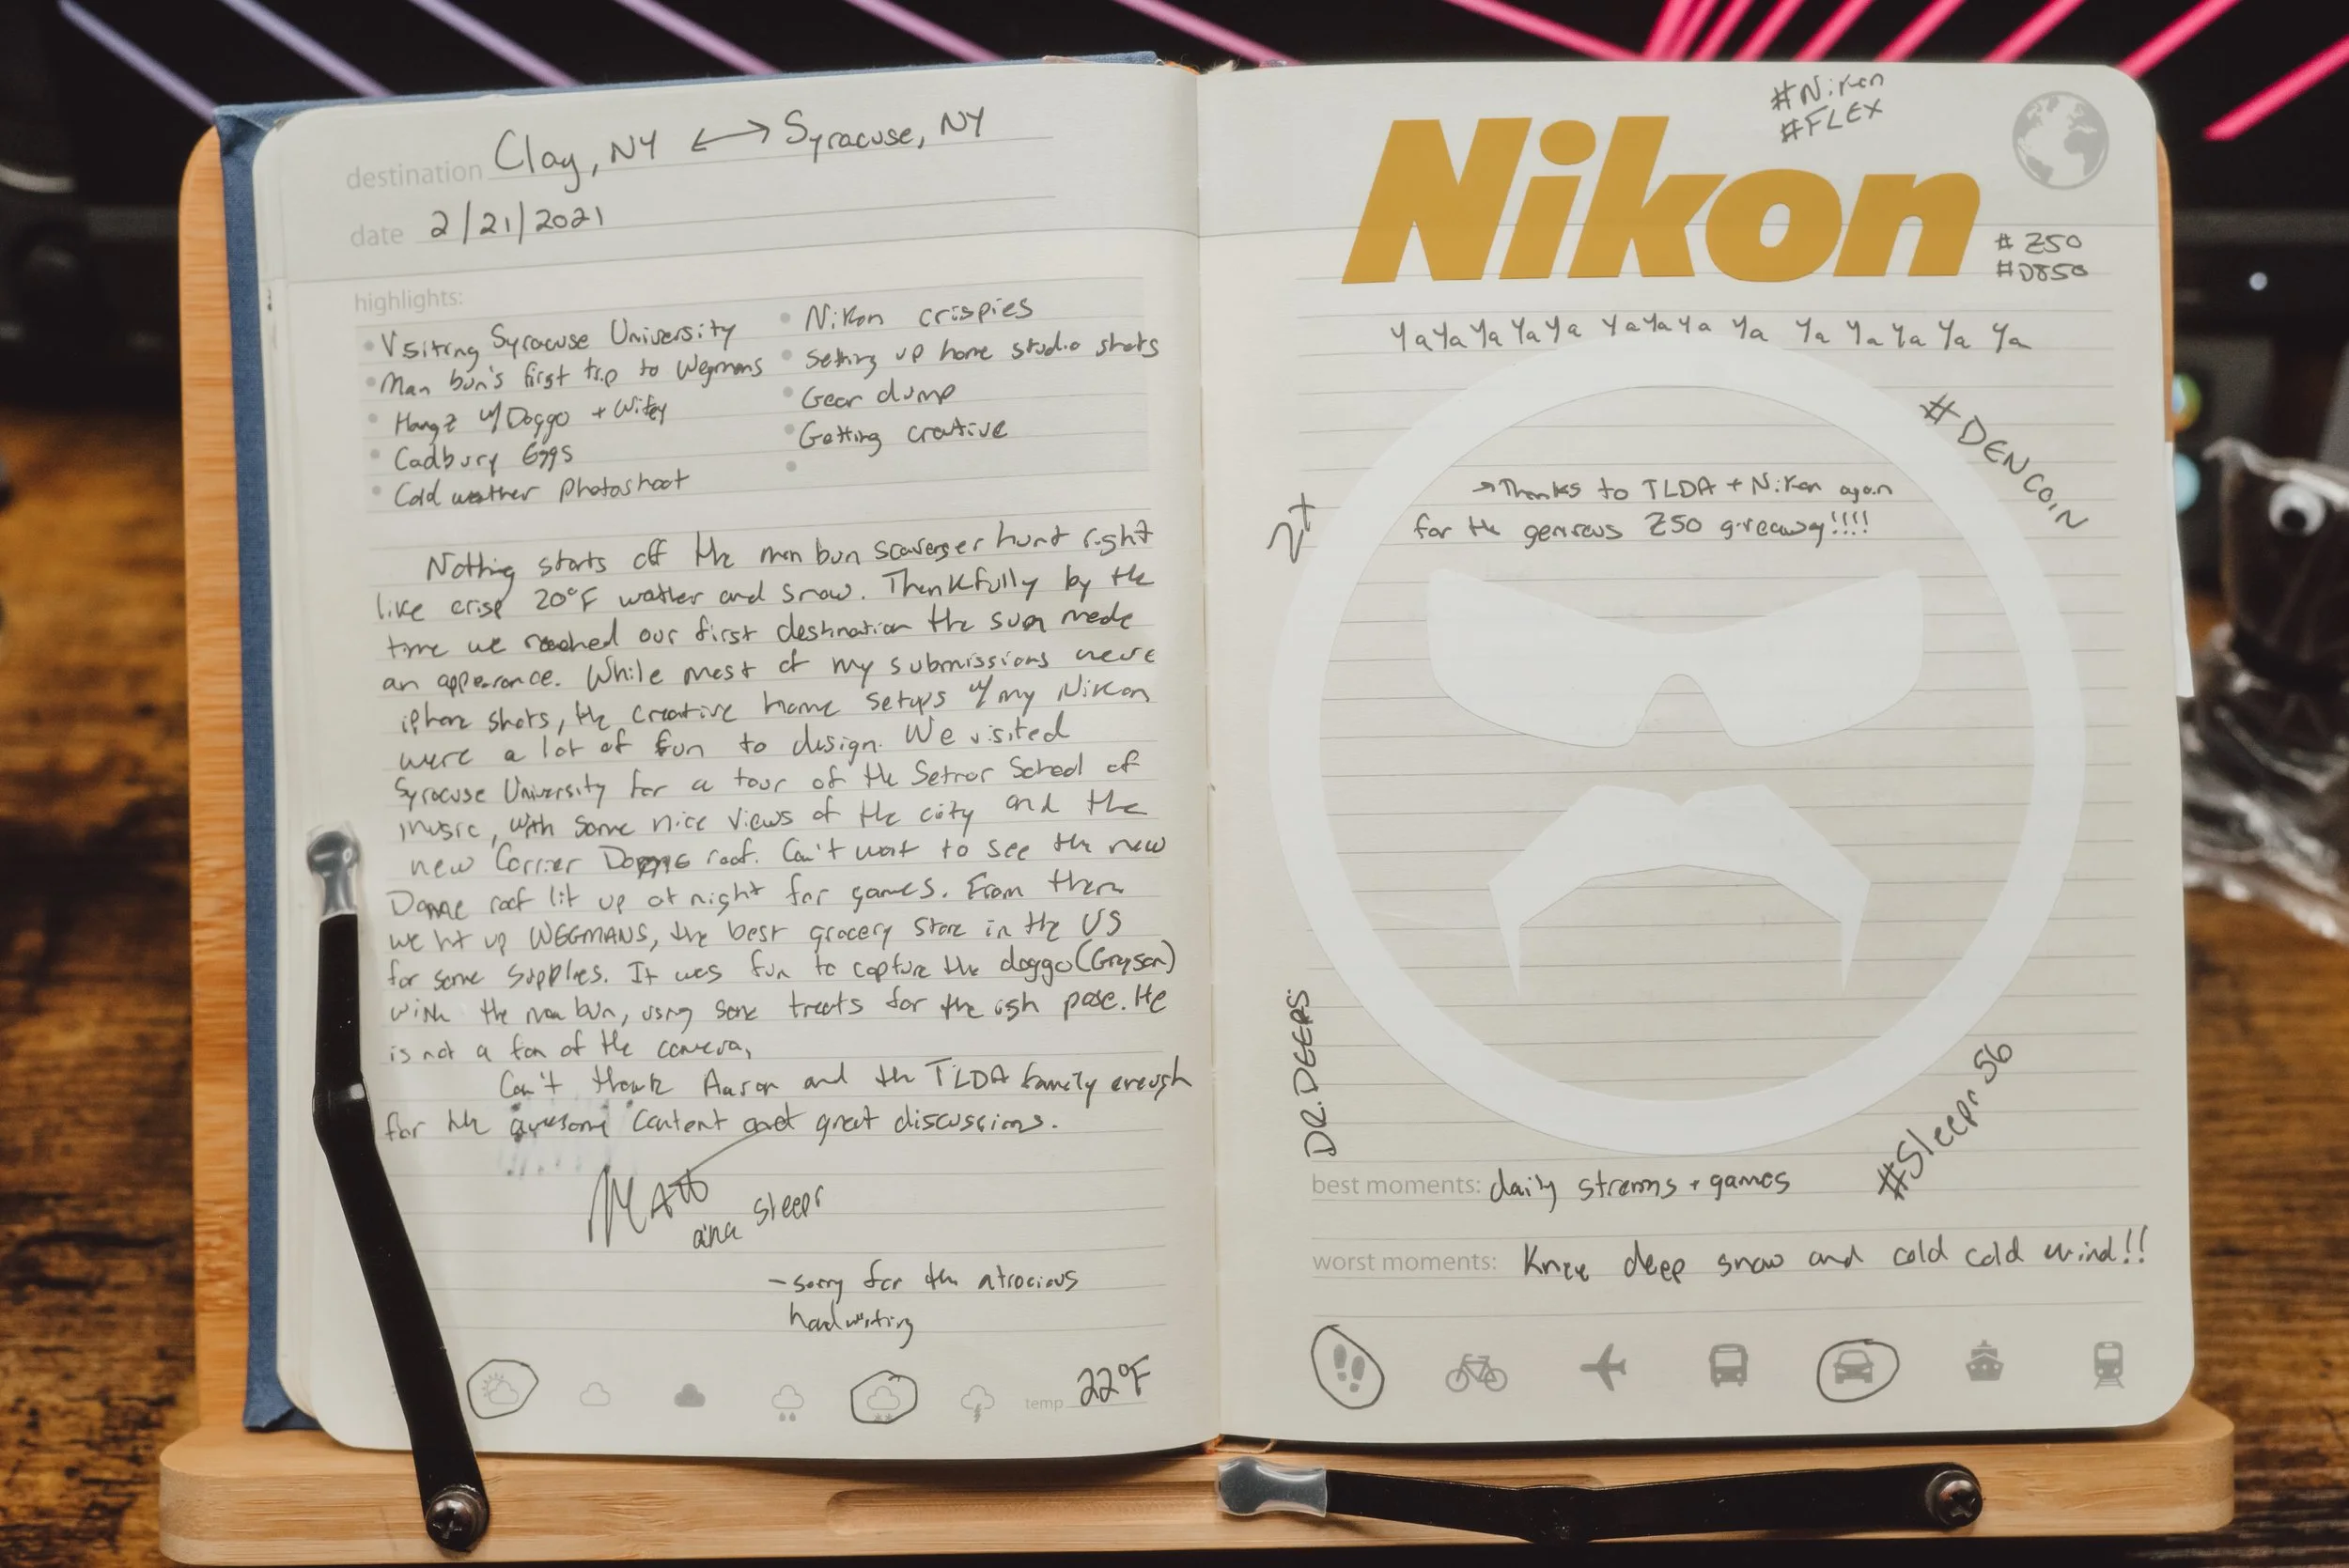 destination Clay, NY ⟷ Syracuse, NY
date 2/21/2021
highlights:
• Visiting Syracuse University
• Man bun's first trip to Wegmans
• Hangz w/ Doggo + Wifey
• Cadbury Eggs
• Cold weather photoshoot
• Nikon crispies
• Setting up home studio shots
• Gear dump
• Getting creative
Nothing starts off the man bun scavenger hunt right
like crisp 20°F weather and snow. Thankfully by the
time we reached our first destination the sun made
an appearance. While most of my submissions were
iphone shots, the creative home setups w/ my Nikon
were a lot of fun to design. We visited
Syracuse University for a tour of the Setnor School of
music, with some nice views of the city and the
new Carrier Dome roof. Can't wait to see the new
Dome roof lit up at night for games. From there
we hit up WEGMANS, the best grocery store in the US
for some supplies. It was fun to capture the doggo (Greyson)
with the man bun, using some treats for the ish pose. He
is not a fan of the camera.
Can't thank Aaron and the TLDA family enough
for the awesome content and great discussions.
Matt
aka sleepr
- sorry for the atrocious
handwriting
temp 22°F
#Nikon
#FLEX
Nikon
# Z50
#D850
Ya Ya Ya Ya Ya Ya Ya Ya Ya Ya Ya Ya Ya Ya
#DENCOIN
→ Thanks to TLDA + Nikon again
for the generous Z50 giveaway!!!!
2+
DR. DEEPS
#Sleepr56
best moments: daily streams + games
worst moments: Knee deep snow and cold cold wind!!